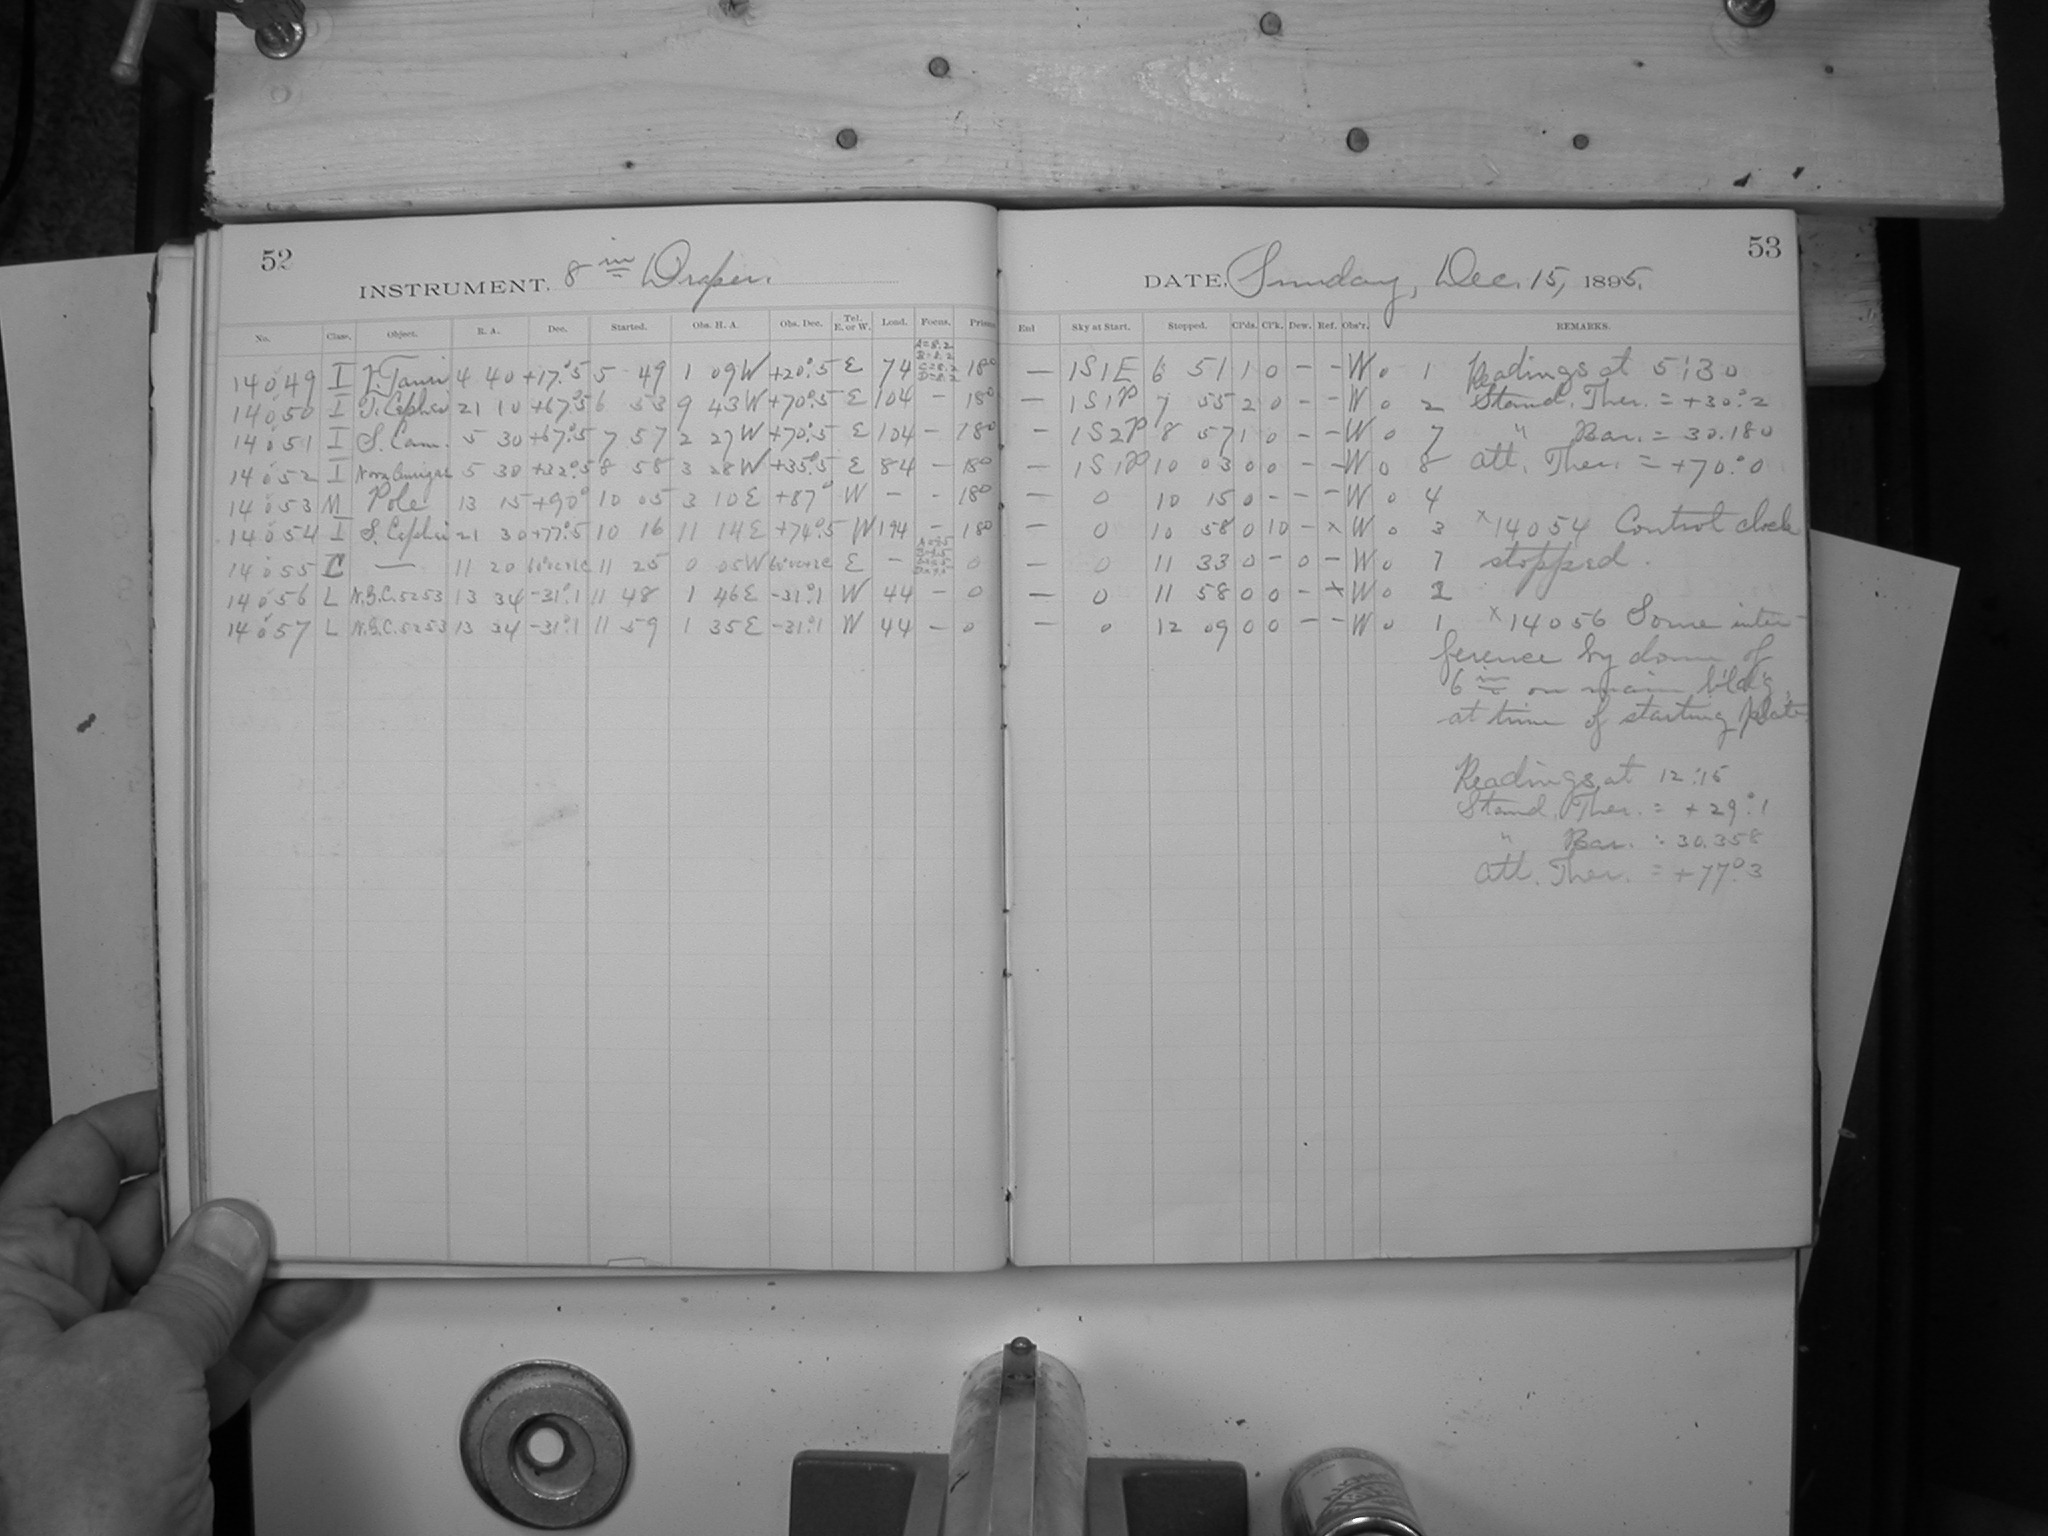 52
INSTRUMENT. 8 in Draper.
No. Class. Object. R. A. Dec. Started. Obs. H. A. Obs. Dec. Tel. E. or W. Load. Focus. Prism
A=8.2
B=8.2
C=8.2
D=8.2
14049 I V. Tauri 4 40 +17°.5 5 49 1 09W +20°.5 E 74 180
14050 I T. Cephei 21 10 +67°.5 6 53 9 43W +70°.5 E 104 - 180
14051 I S. Cam. 5 30 +67°.5 7 57 2 27W +70°.5 E 104 - 180
14052 I Nova Aurigae 5 30 +32°.5 8 58 3 28W +35°.5 E 84 - 180
14053 M Pole 13 15 +90° 10 05 3 10E +87° W - - 180
14054 I S. Cephei 21 30 +77°.5 10 16 11 14E +74°.5 W 194 - 180
14055 C — 11 20 11 25 0 05W E - 0
14056 L N.G.C. 5253 13 34 -31°.1 11 48 1 46E -31°.1 W 44 - 0
14057 L N.G.C. 5253 13 34 -31°.1 11 59 1 35E -31°.1 W 44 - 0
53
DATE, Sunday, Dec. 15, 1895.
End Sky at Start. Stopped. Cl'ds. Cl'k. Dew. Ref. Obs'r. REMARKS.
— 1S1E 6 51 1 0 - - W 0 1 Readings at 5:30
— 1S1P 7 55 2 0 - - W 0 2 Stand. Ther. = +30°.2
— 1S2P 8 57 1 0 - - W 0 7 " Bar. = 30.180
— 1S1P 10 03 0 0 - - W 0 8 Att. Ther. = +70°.0
— 0 10 15 0 - - - W 0 4
— 0 10 58 0 10 - x W 0 3 x14054 Control clock
— 0 11 33 0 - 0 - W 0 7 stopped.
— 0 11 58 0 0 - x W 0 2
— 0 12 09 0 0 - - W 0 1 x14056 Some inter-
ference by dome of
6 in on main bld'g.
at time of starting plate
Readings at 12:15
Stand. Ther. = +29°.1
" Bar. = 30.358
Att. Ther. = +77°.3